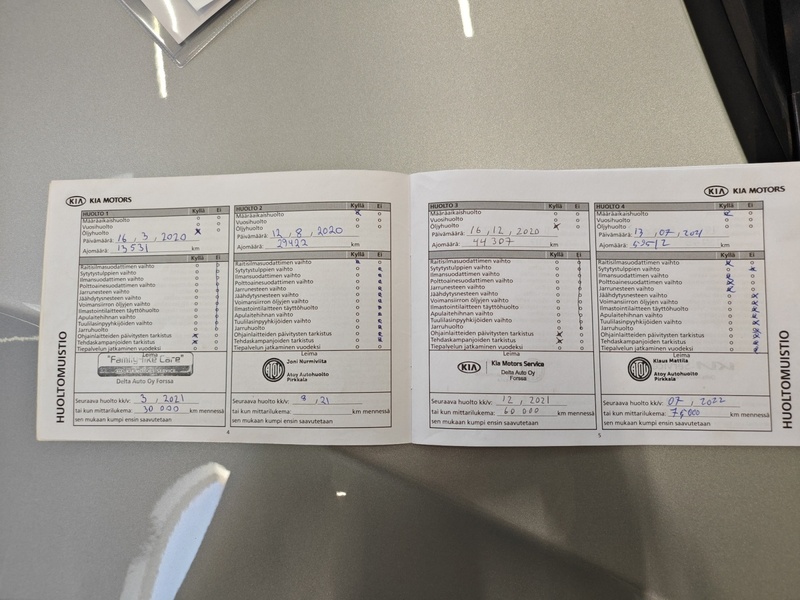 KIA KIA MOTORS
HUOLTO 1 Kyllä Ei
Määräaikaishuolto
Vuosihuolto
Öljyhuolto
Päivämäärä: 16, 3, 2020
Ajomäärä: 13531 km
Kyllä Ei
Raitisilmasuodattimen vaihto
Sytytystulppien vaihto
Ilmansuodattimen vaihto
Polttoainesuodattimen vaihto
Jarrunesteen vaihto
Jäähdytysnesteen vaihto
Voimansiirron öljyjen vaihto
Ilmastointilaitteen täyttöhuolto
Apulaitehihnan vaihto
Tuulilasinpyyhkijöiden vaihto
Jarruhuolto
Ohjainlaitteiden päivitysten tarkistus
Tehdaskampanjoiden tarkistus
Tiepalvelun jatkaminen vuodeksi
Leima
"Family-like Care"
Delta Auto Oy Forssa
Seuraava huolto kk/v: 3, 2021
tai kun mittarilukema: 30 000 km mennessä
sen mukaan kumpi ensin saavutetaan
HUOLTOMUISTIO
HUOLTO 2 Kyllä Ei
Määräaikaishuolto
Vuosihuolto
Öljyhuolto
Päivämäärä: 12, 8, 2020
Ajomäärä: 29422 km
Kyllä Ei
Raitisilmasuodattimen vaihto
Sytytystulppien vaihto
Ilmansuodattimen vaihto
Polttoainesuodattimen vaihto
Jarrunesteen vaihto
Jäähdytysnesteen vaihto
Voimansiirron öljyjen vaihto
Ilmastointilaitteen täyttöhuolto
Apulaitehihnan vaihto
Tuulilasinpyyhkijöiden vaihto
Jarruhuolto
Ohjainlaitteiden päivitysten tarkistus
Tehdaskampanjoiden tarkistus
Tiepalvelun jatkaminen vuodeksi
Leima
Joni Nurmiviita
Atoy Autohuolto
Pirkkala
Seuraava huolto kk/v: 8, 21
tai kun mittarilukema: km mennessä
sen mukaan kumpi ensin saavutetaan
4
HUOLTO 3 Kyllä Ei
Määräaikaishuolto
Vuosihuolto
Öljyhuolto
Päivämäärä: 16, 12, 2020
Ajomäärä: 44307 km
Kyllä Ei
Raitisilmasuodattimen vaihto
Sytytystulppien vaihto
Ilmansuodattimen vaihto
Polttoainesuodattimen vaihto
Jarrunesteen vaihto
Jäähdytysnesteen vaihto
Voimansiirron öljyjen vaihto
Ilmastointilaitteen täyttöhuolto
Apulaitehihnan vaihto
Tuulilasinpyyhkijöiden vaihto
Jarruhuolto
Ohjainlaitteiden päivitysten tarkistus
Tehdaskampanjoiden tarkistus
Tiepalvelun jatkaminen vuodeksi
Leima
KIA Kia Motors Service
Delta Auto Oy
Forssa
Seuraava huolto kk/v: 12, 2021
tai kun mittarilukema: 60 000 km mennessä
sen mukaan kumpi ensin saavutetaan
KIA KIA MOTORS
HUOLTO 4 Kyllä Ei
Määräaikaishuolto
Vuosihuolto
Öljyhuolto
Päivämäärä: 13, 07, 2021
Ajomäärä: km
Kyllä Ei
Raitisilmasuodattimen vaihto
Sytytystulppien vaihto
Ilmansuodattimen vaihto
Polttoainesuodattimen vaihto
Jarrunesteen vaihto
Jäähdytysnesteen vaihto
Voimansiirron öljyjen vaihto
Ilmastointilaitteen täyttöhuolto
Apulaitehihnan vaihto
Tuulilasinpyyhkijöiden vaihto
Jarruhuolto
Ohjainlaitteiden päivitysten tarkistus
Tehdaskampanjoiden tarkistus
Tiepalvelun jatkaminen vuodeksi
Leima
Klaus Mattila
Atoy Autohuolto
Pirkkala
Seuraava huolto kk/v: 07, 2022
tai kun mittarilukema: 75000 km mennessä
sen mukaan kumpi ensin saavutetaan
5
HUOLTOMUISTIO